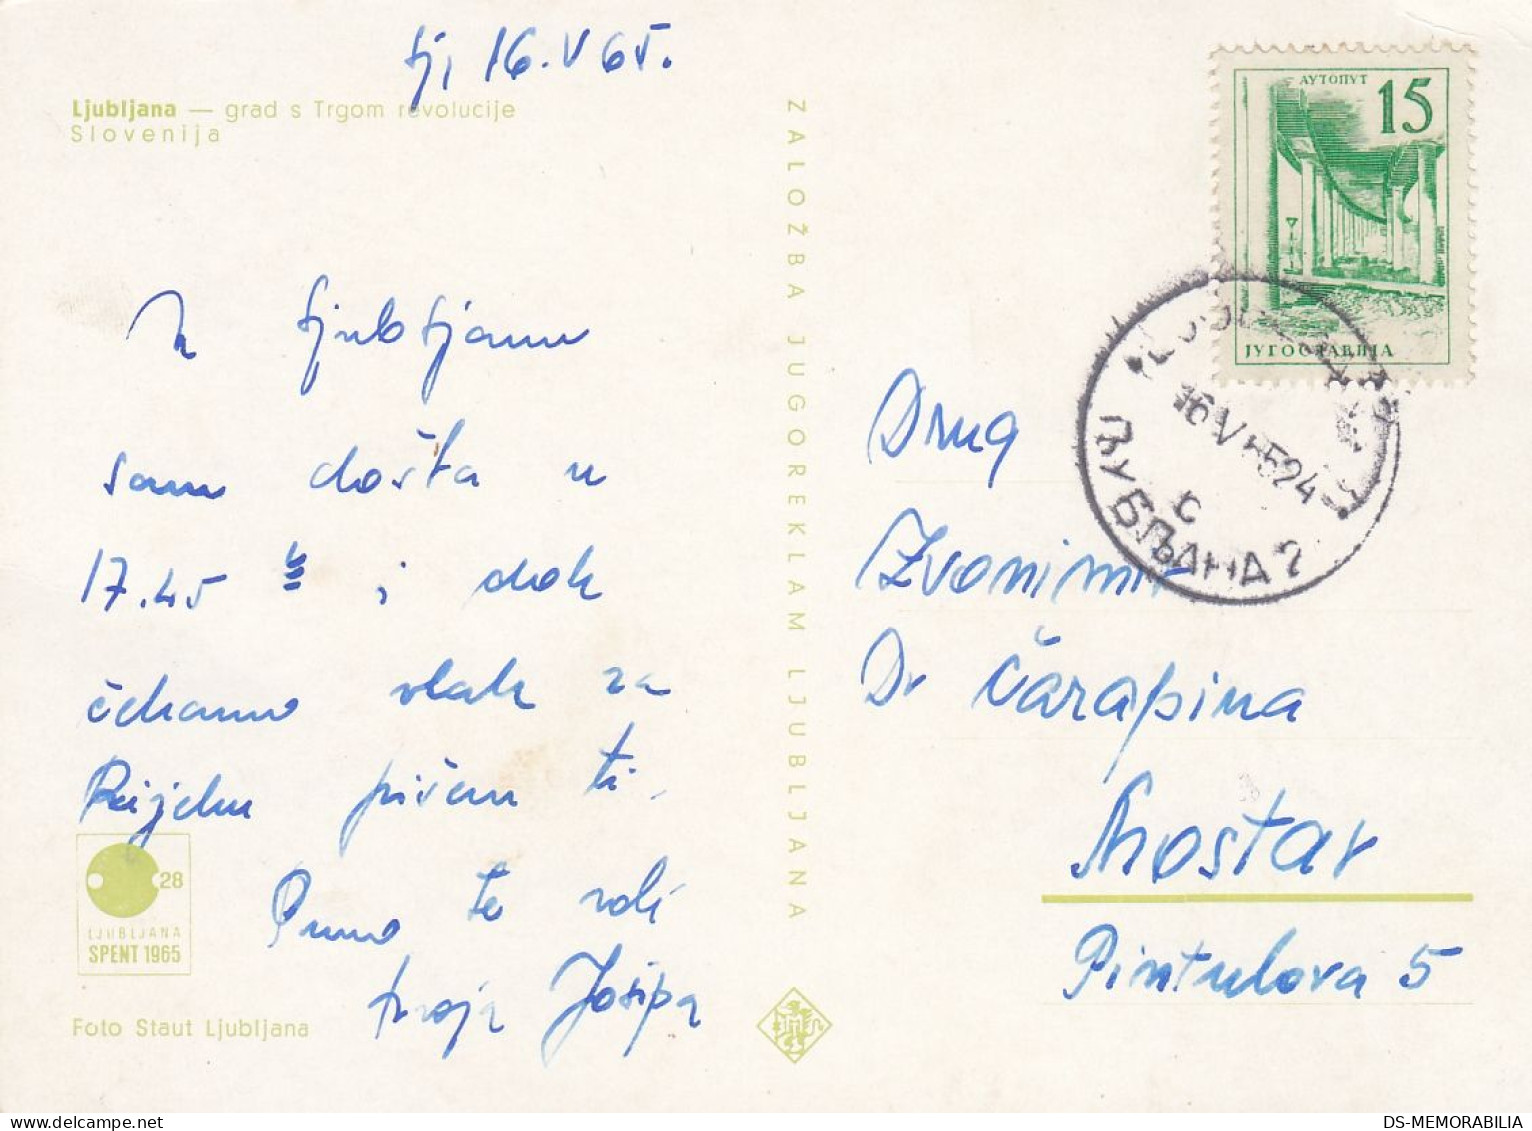 Lj, 16. V 65.
Ljubljana — grad s Trgom revolucije
Slovenija
U Ljubljanu
sam došla u
17.45 h i dok
čekamo vlak za
Rijeku pišem ti.
Puno te voli
tvoja Josipa
28
LJUBLJANA
SPENT 1965
Foto Staut Ljubljana
ZALOŽBA JUGOREKLAM LJUBLJANA
АУТОПУТ
15
ЈУГОСЛАВИЈА
16 V 65 24
С
ЉУБЉАНА 2
Drug
Zvonimir
Dr Čarapina
Mostar
Pintulova 5
DS-MEMORABILIA